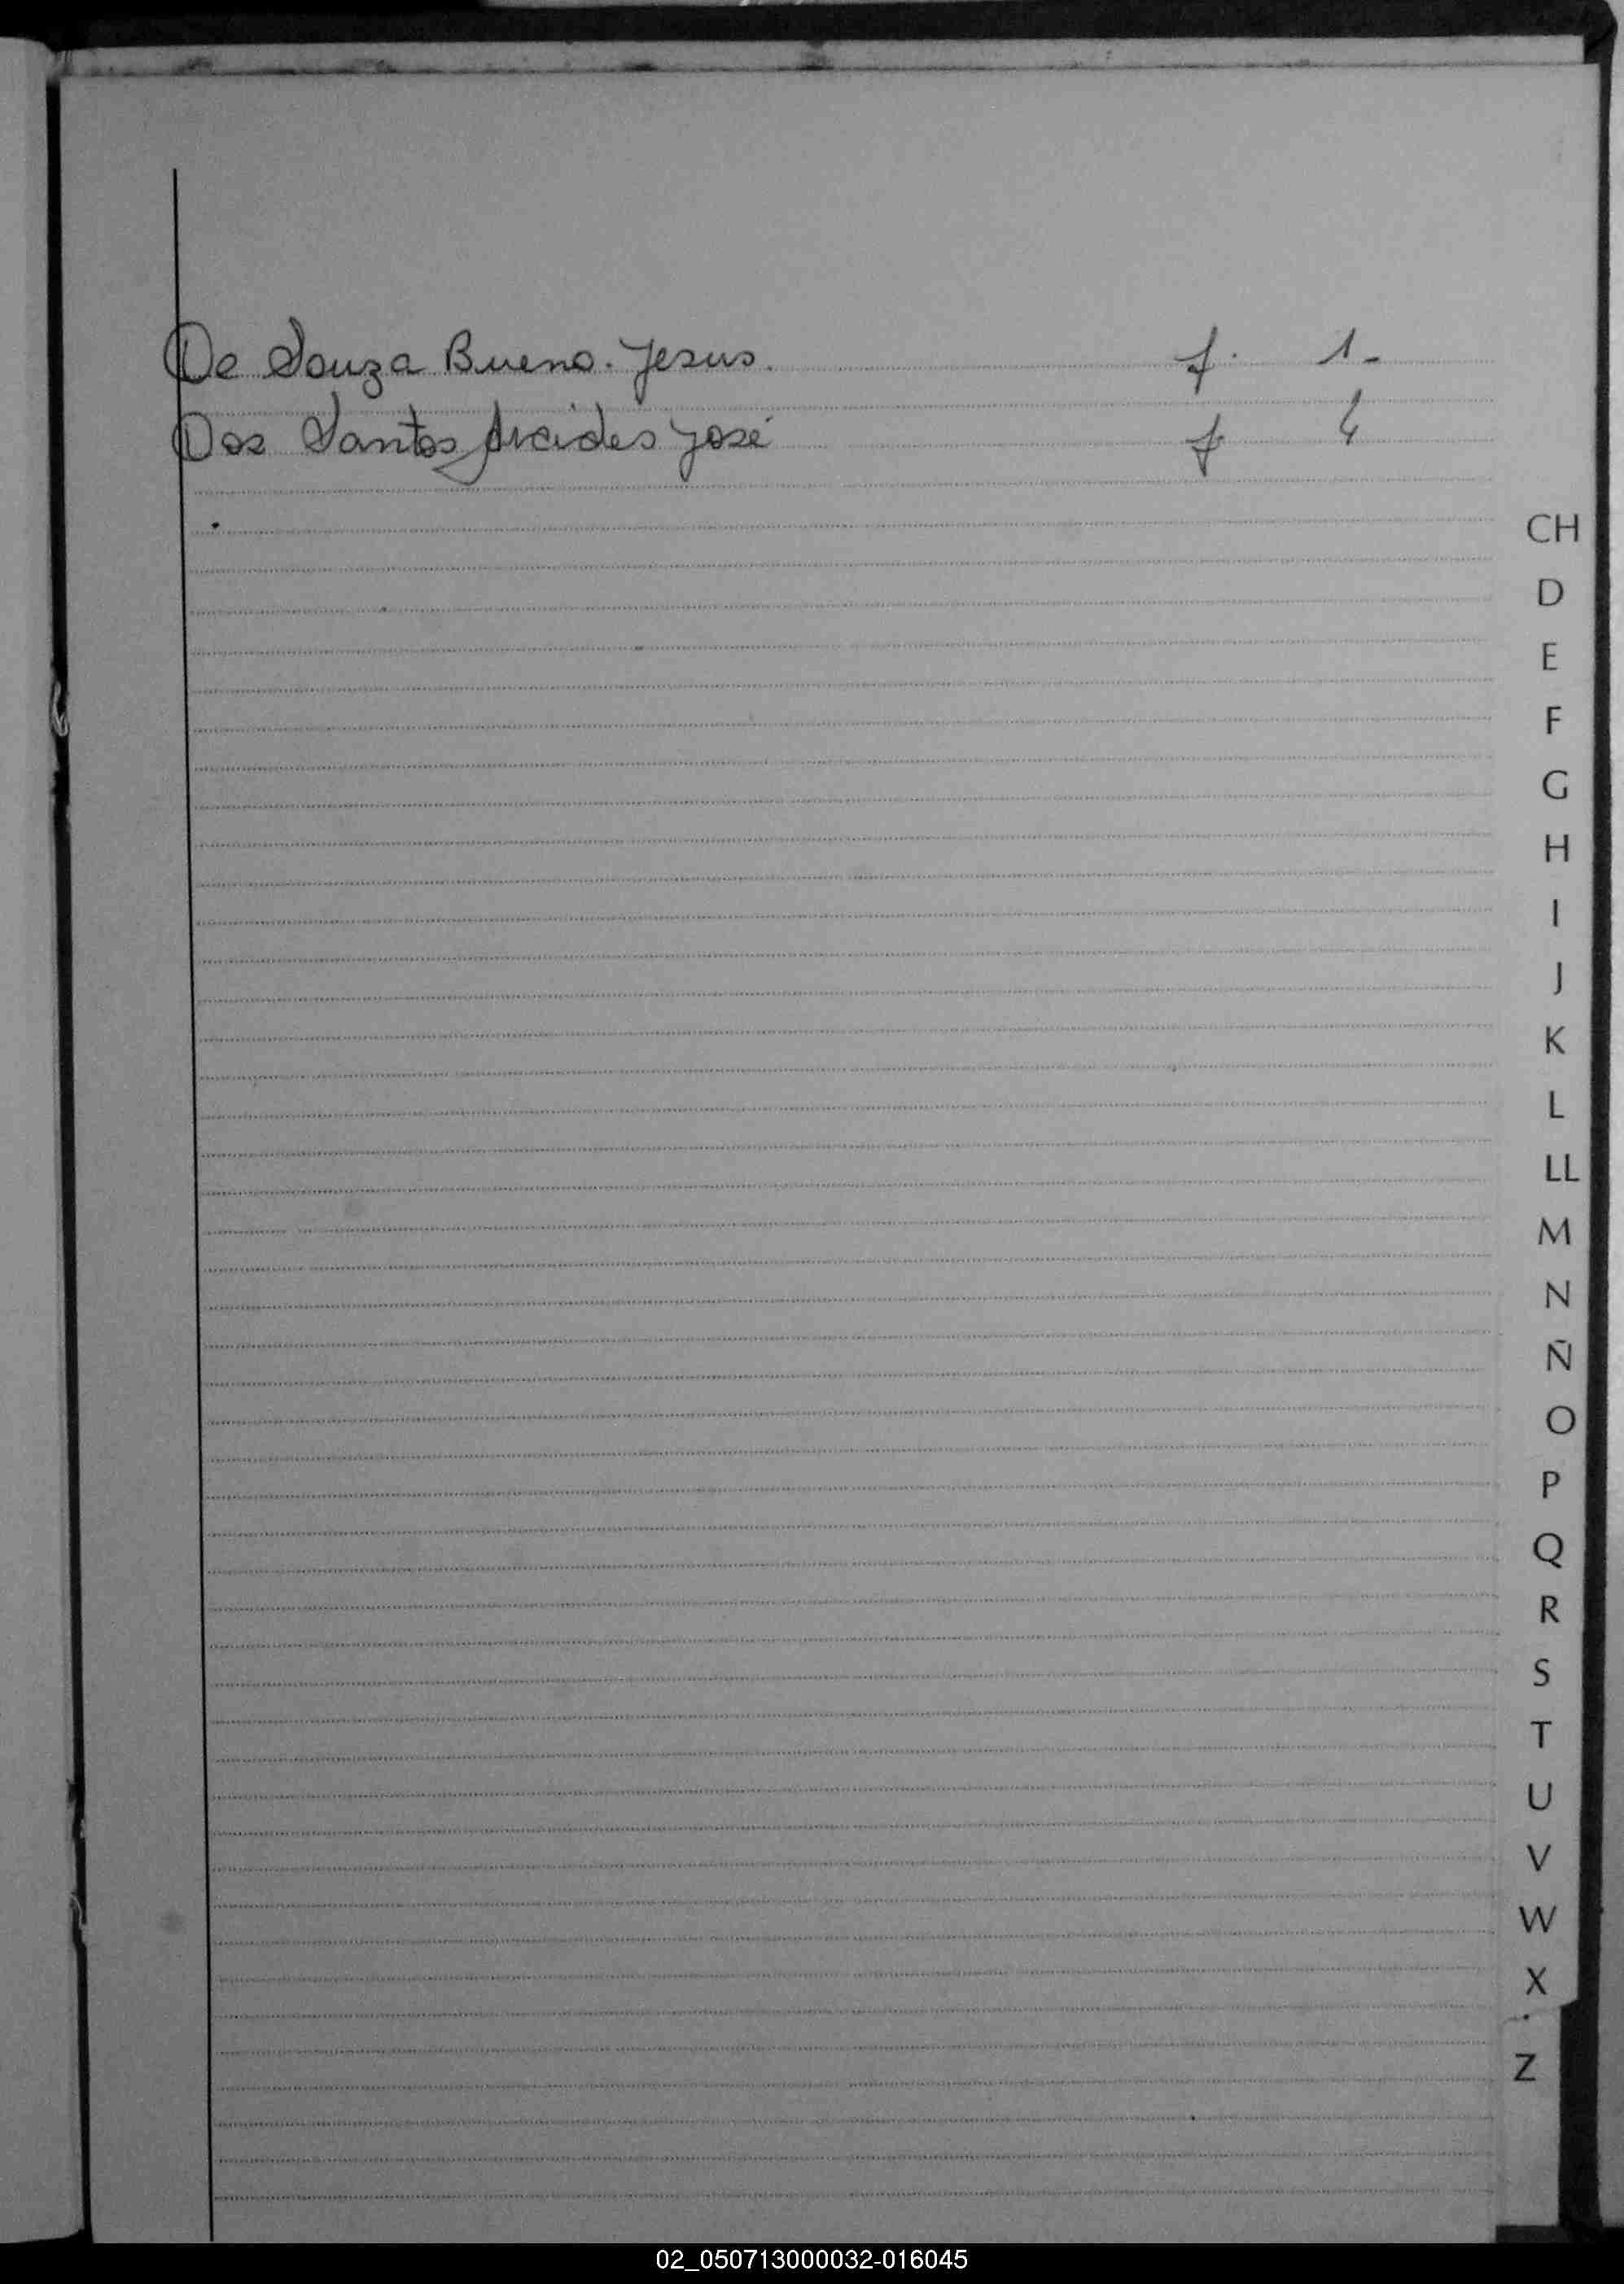 De Souza Bueno. Jesus. f. 1-
Dos Santos Arcides José f 4
CH
D
E
F
G
H
I
J
K
L
LL
M
N
Ñ
O
P
Q
R
S
T
U
V
W
X
Z
02_050713000032-016045